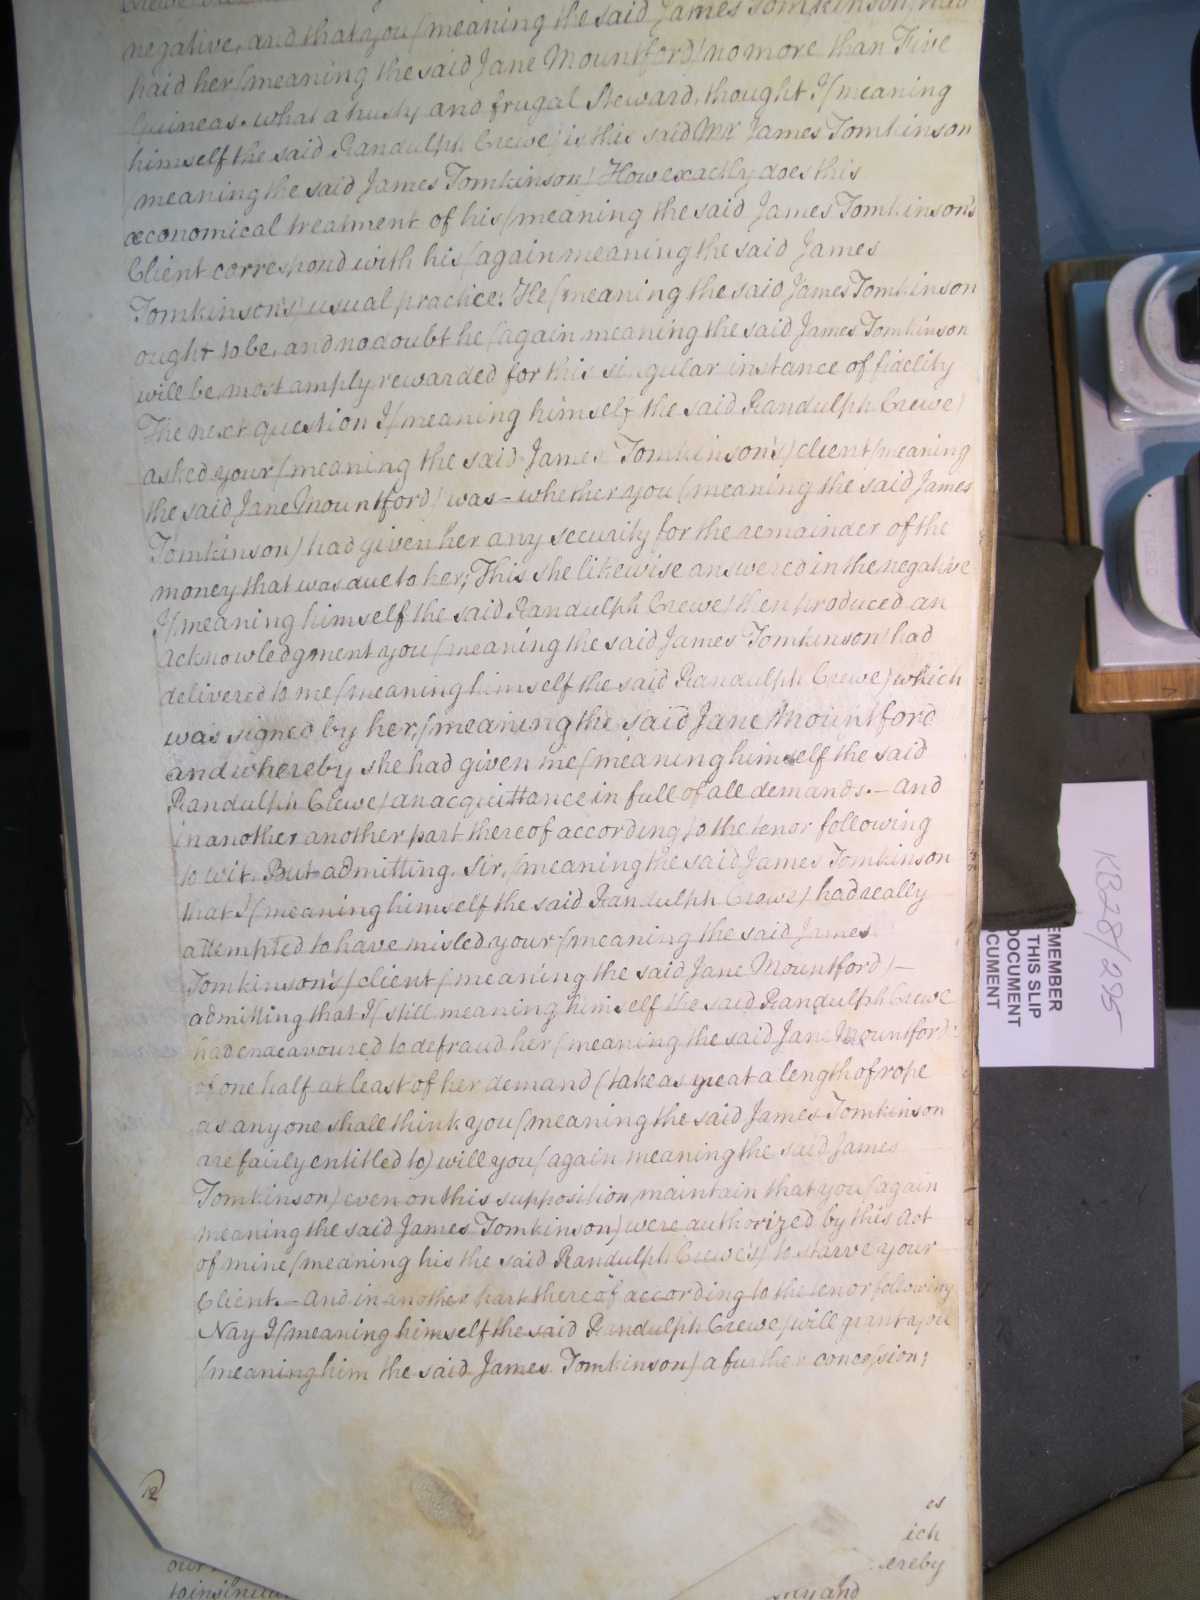 negative, and that you (meaning the said James Tomkinson) had
paid her (meaning the said Jane Mountford) no more than Five
Guineas. what a trusty and frugal Steward, thought I (meaning
himself the said Randulph Crewe) is this said Mr. James Tomkinson
(meaning the said James Tomkinson) How exactly does this
œconomical treatment of his (meaning the said James Tomkinson's
Client correspond with his (again meaning the said James
Tomkinson's) usual practice: He (meaning the said James Tomkinson
ought to be, and no doubt he (again meaning the said James Tomkinson
will be most amply rewarded for this singular instance of fidelity
The next question I (meaning himself the said Randulph Crewe)
asked your (meaning the said James Tomkinson's) client (meaning
the said Jane Mountford) was - whether you (meaning the said James
Tomkinson) had given her any security for the remainder of the
money that was due to her; This she likewise answered in the negative
I (meaning himself the said Randulph Crewe) then produced an
acknowledgment you (meaning the said James Tomkinson) had
delivered to me (meaning himself the said Randulph Crewe) which
was signed by her, (meaning the said Jane Mountford
and whereby she had given me (meaning himself the said
Randulph Crewe) an acquittance in full of all demands. - And
in another another part thereof according to the tenor following
to wit. But admitting. Sir, (meaning the said James Tomkinson
that I (meaning himself the said Randulph Crewe) had really
attempted to have misled your (meaning the said James
Tomkinson's) client (meaning the said Jane Mountford) -
admitting that I (still meaning himself the said Randulph Crewe
had endeavoured to defraud her (meaning the said Jane Mountford)
of one half at least of her demand (take as great a length of rope
as any one shall think you (meaning the said James Tomkinson
are fairly entitled to) will you (again meaning the said James
Tomkinson) even on this supposition, maintain that you (again
meaning the said James Tomkinson) were authorized by this Act
of mine (meaning his the said Randulph Crewe's) to starve your
Client. - And in another part thereof according to the tenor following
Nay I (meaning himself the said Randulph Crewe) will grant you
(meaning him the said James Tomkinson) a further concession;
12
es
ich
ereby
our
ny and
KB28/295
EMEMBER
THIS SLIP
DOCUMENT
CUMENT